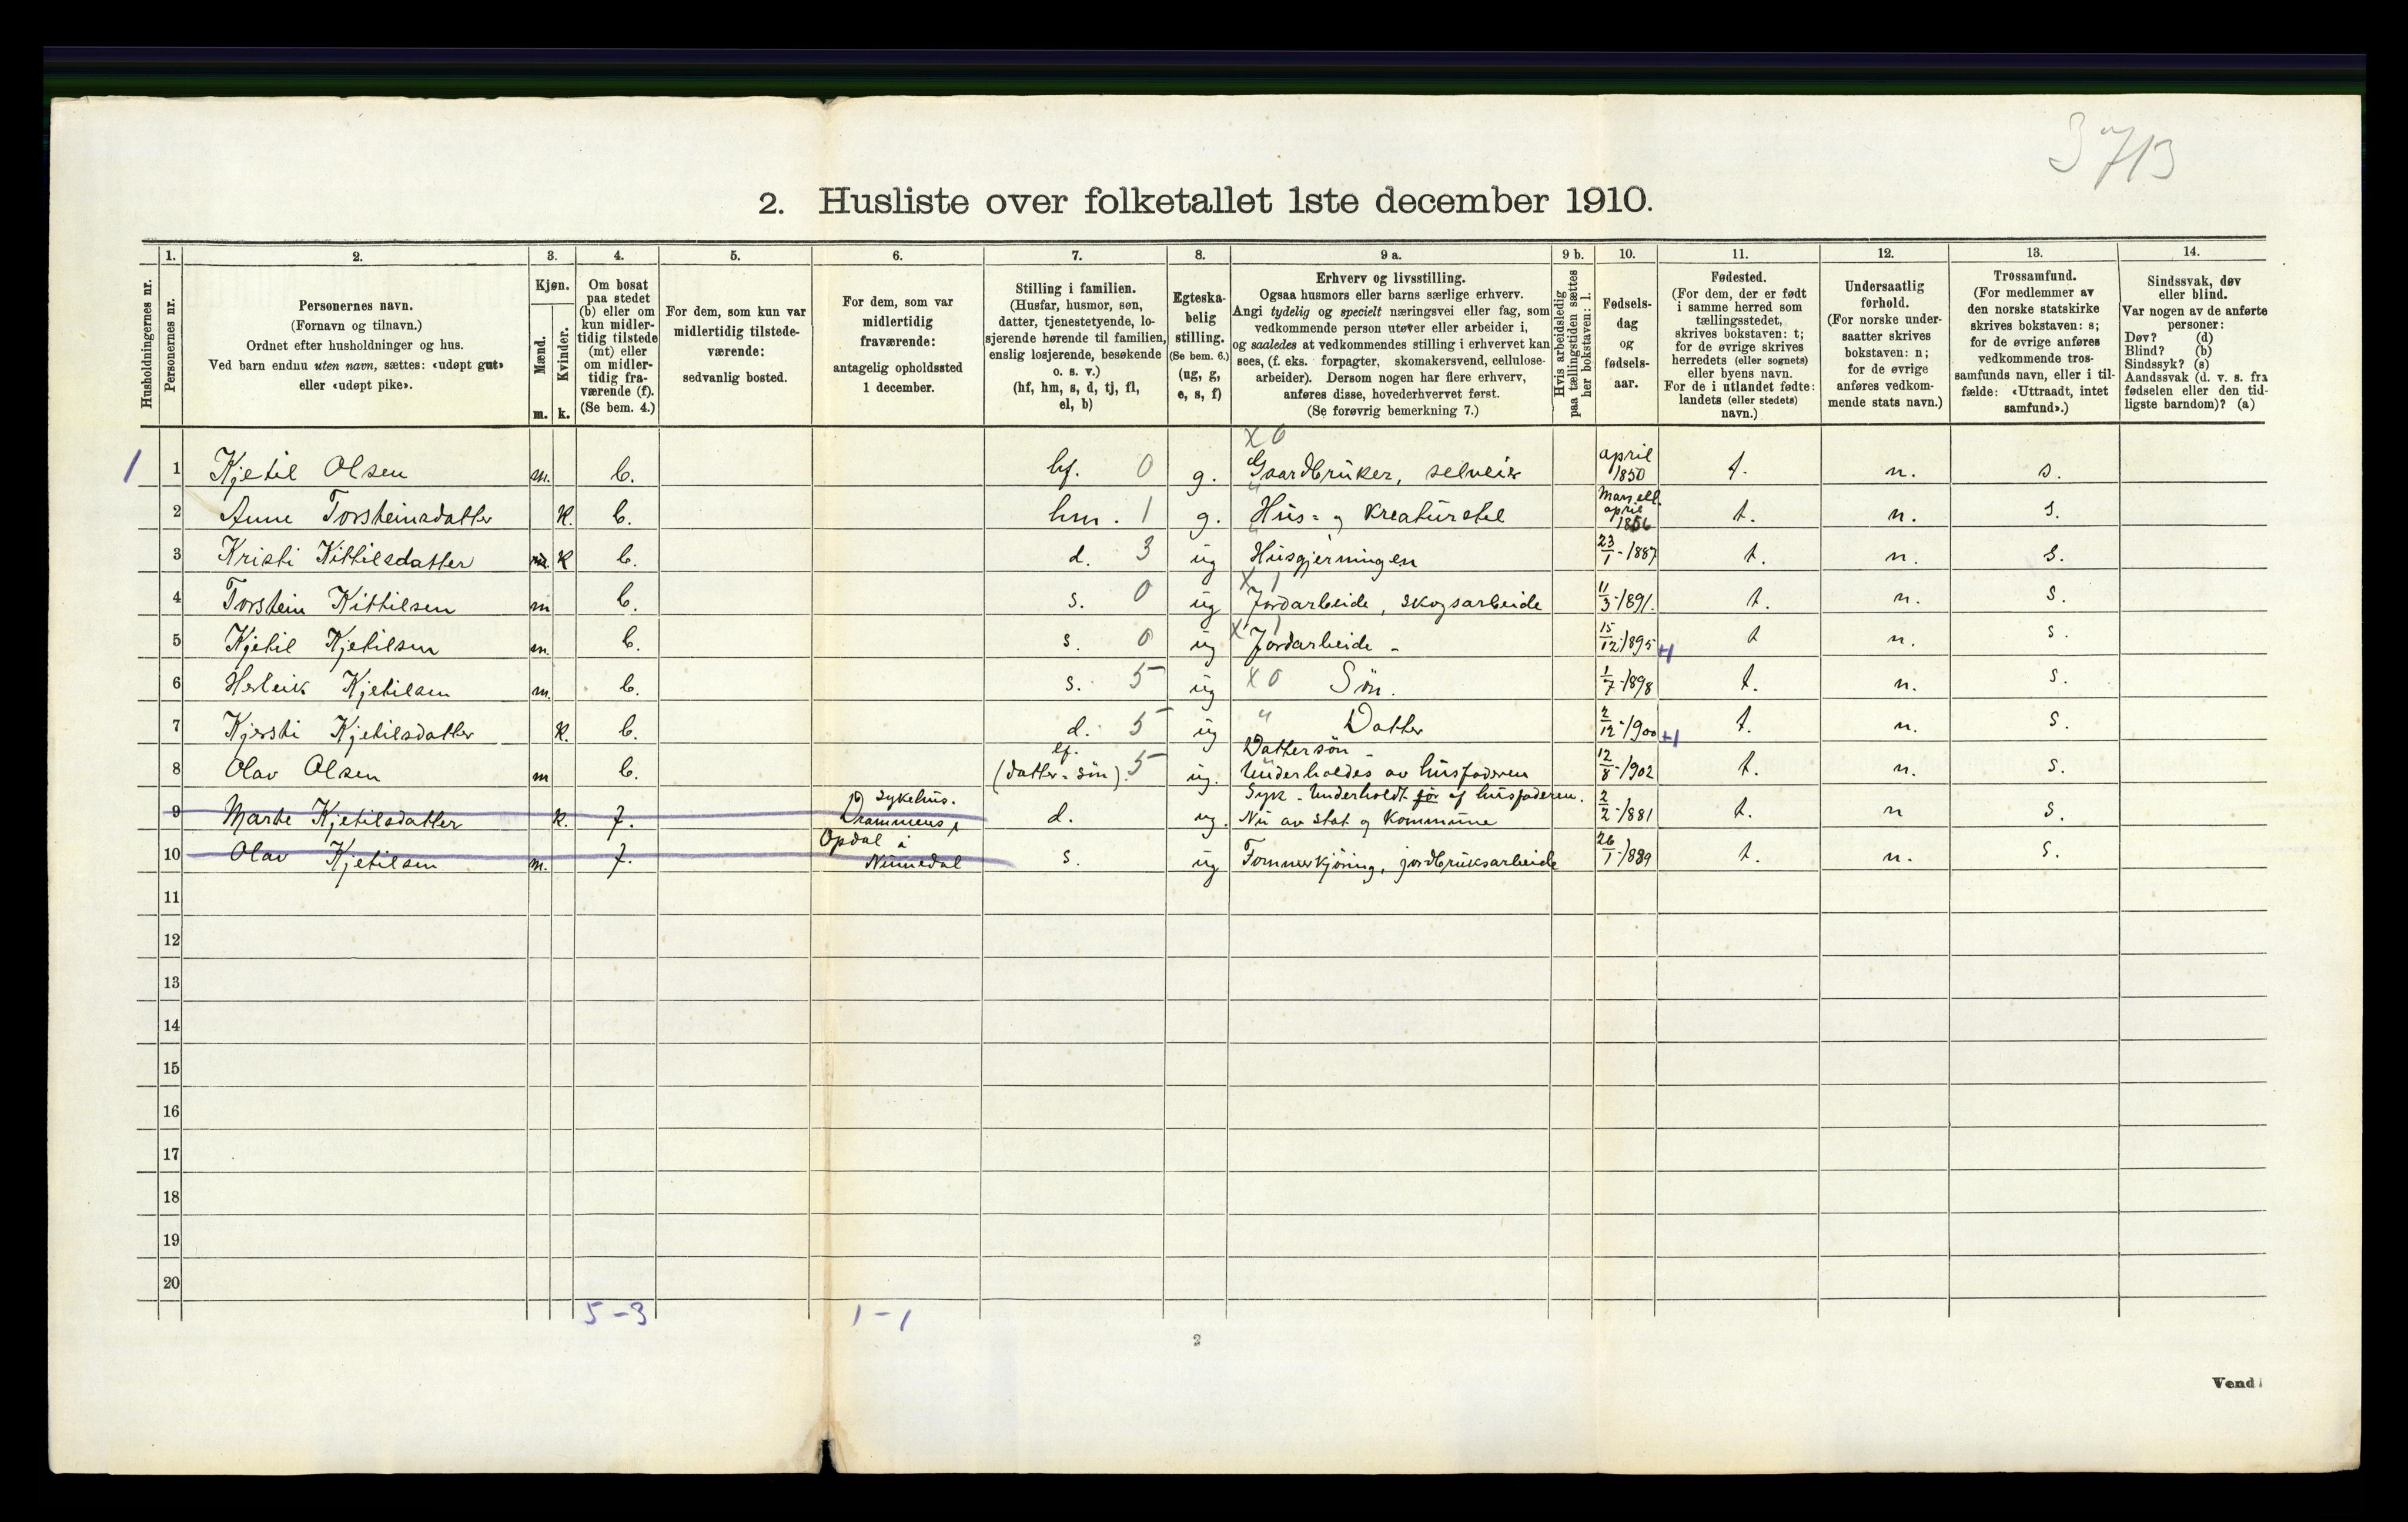 3713
2. Husliste over folketallet 1ste december 1910.
Husholdningernes nr.
1.
Personernes nr.
2.
Personernes navn.
(Fornavn og tilnavn.)
Ordnet efter husholdninger og hus.
Ved barn endnu uten navn, sættes: «udøpt gut»
eller «udøpt pike».
3.
Kjøn.
Mænd.
Kvinder.
m. k.
4.
Om bosat
paa stedet
(b) eller om
kun midler-
tidig tilstede
(mt) eller
om midler-
tidig fra-
værende (f).
(Se bem. 4.)
5.
For dem, som kun var
midlertidig tilstede-
værende:
sedvanlig bosted.
6.
For dem, som var
midlertidig
fraværende:
antagelig opholdssted
1 december.
7.
Stilling i familien.
(Husfar, husmor, søn,
datter, tjenestetyende, lo-
sjerende hørende til familien,
enslig losjerende, besøkende
o. s. v.)
(hf, hm, s, d, tj, fl,
el, b)
8.
Egteska-
belig
stilling.
(Se bem. 6.)
(ug, g,
e, s, f)
9 a.
Erhverv og livsstilling.
Ogsaa husmors eller barns særlige erhverv.
Angi tydelig og specielt næringsvei eller fag, som
vedkommende person utøver eller arbeider i,
og saaledes at vedkommendes stilling i erhvervet kan
sees, (f. eks. forpagter, skomakersvend, cellulose-
arbeider). Dersom nogen har flere erhverv,
anføres disse, hovederhvervet først.
(Se forøvrig bemerkning 7.)
9 b.
Hvis arbeidsledig
paa tællingstiden sættes
her bokstaven: l.
10.
Fødsels-
dag
og
fødsels-
aar.
11.
Fødested.
(For dem, der er født
i samme herred som
tællingsstedet,
skrives bokstaven: t;
for de øvrige skrives
herredets (eller sognets)
eller byens navn.
For de i utlandet fødte:
landets (eller stedets)
navn.)
12.
Undersaatlig
forhold.
(For norske under-
saatter skrives
bokstaven: n;
for de øvrige
anføres vedkom-
mende stats navn.)
13.
Trossamfund.
(For medlemmer av
den norske statskirke
skrives bokstaven: s;
for de øvrige anføres
vedkommende tros-
samfunds navn, eller i til-
fælde: «Uttraadt, intet
samfund».)
14.
Sindssvak, døv
eller blind.
Var nogen av de anførte
personer:
Døv? (d)
Blind? (b)
Sindssyk? (s)
Aandssvak (d. v. s. fra
fødselen eller den tid-
ligste barndom)? (a)
x 0
1 1 Kjetil Olsen m. b. hf. 0 g. Gaardbruker, selveier april 1850 t. n. s.
2 Anne Torsteinsdatter k. b. hm. 1 g. " Hus- og Kreaturstel Mars ell. april 1856 t. n. s.
3 Kristi Kittilsdatter m. k b. d. 3 ug " Husgjerningen 23/1-1887 t. n. s.
4 Torstein Kittilsen m b. s. 0 ug x 1 Jordarbeide, skogsarbeide 11/3-1891. t. n. s.
5 Kjetil Kjetilsen m. b. s. 0 ug x 1 Jordarbeide - 15/12-1895 +1 t n. s.
6 Herleik Kjetilsen m. b. s. 5 ug x 0 Søn. 1/7-1898 t. n. s.
7 Kjersti Kjetilsdatter k. b. d. 5 ug " Datter 2/12-1900 +1 t. n. s.
8 Olav Olsen m b. (datter-søn). 5 ug. Dattersøn -
Underholdes av husfaderen 12/8-1902 t. n. s.
9 Marte Kjetilsdatter k. f. Drammens sykehus. d. ug. Syk - Underholdt før af husfaderen.
Nu av stat og Kommune 2/2-1881 t. n s.
10 Olav Kjetilsen m. f. Opdal i
Numedal s. ug Tømmerkjøring, jordbruksarbeide 26/1-1889 t. n. s.
11
12
13
14
15
16
17
18
19
20
5-3 1-1
2
Vend!